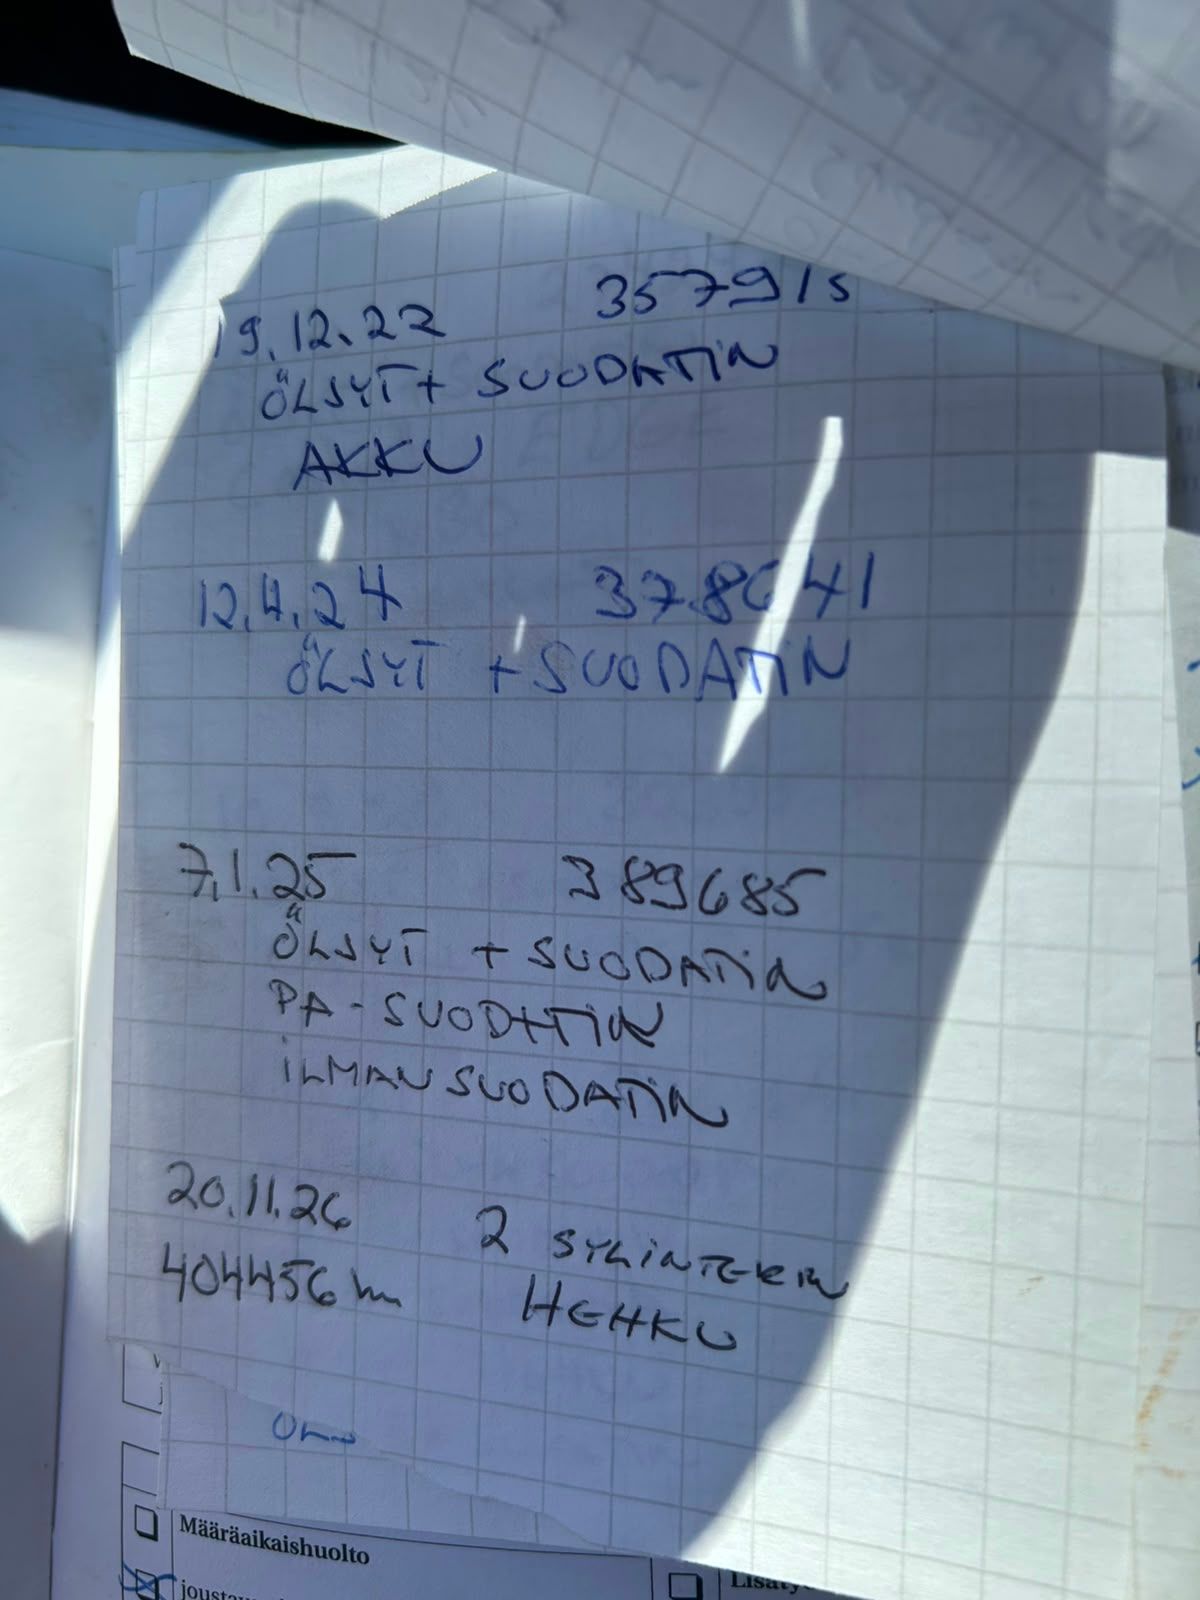 19.12.22 357915
ÖLJYT + SUODATIN
AKKU
12.4.24 378641
ÖLJYT + SUODATIN
7.1.25 389685
ÖLJYT + SUODATIN
PA-SUODATIN
iLMANSUODATIN
20.11.26 2 SYLINTERIN
404456 km HEHKU
Määräaikaishuolto